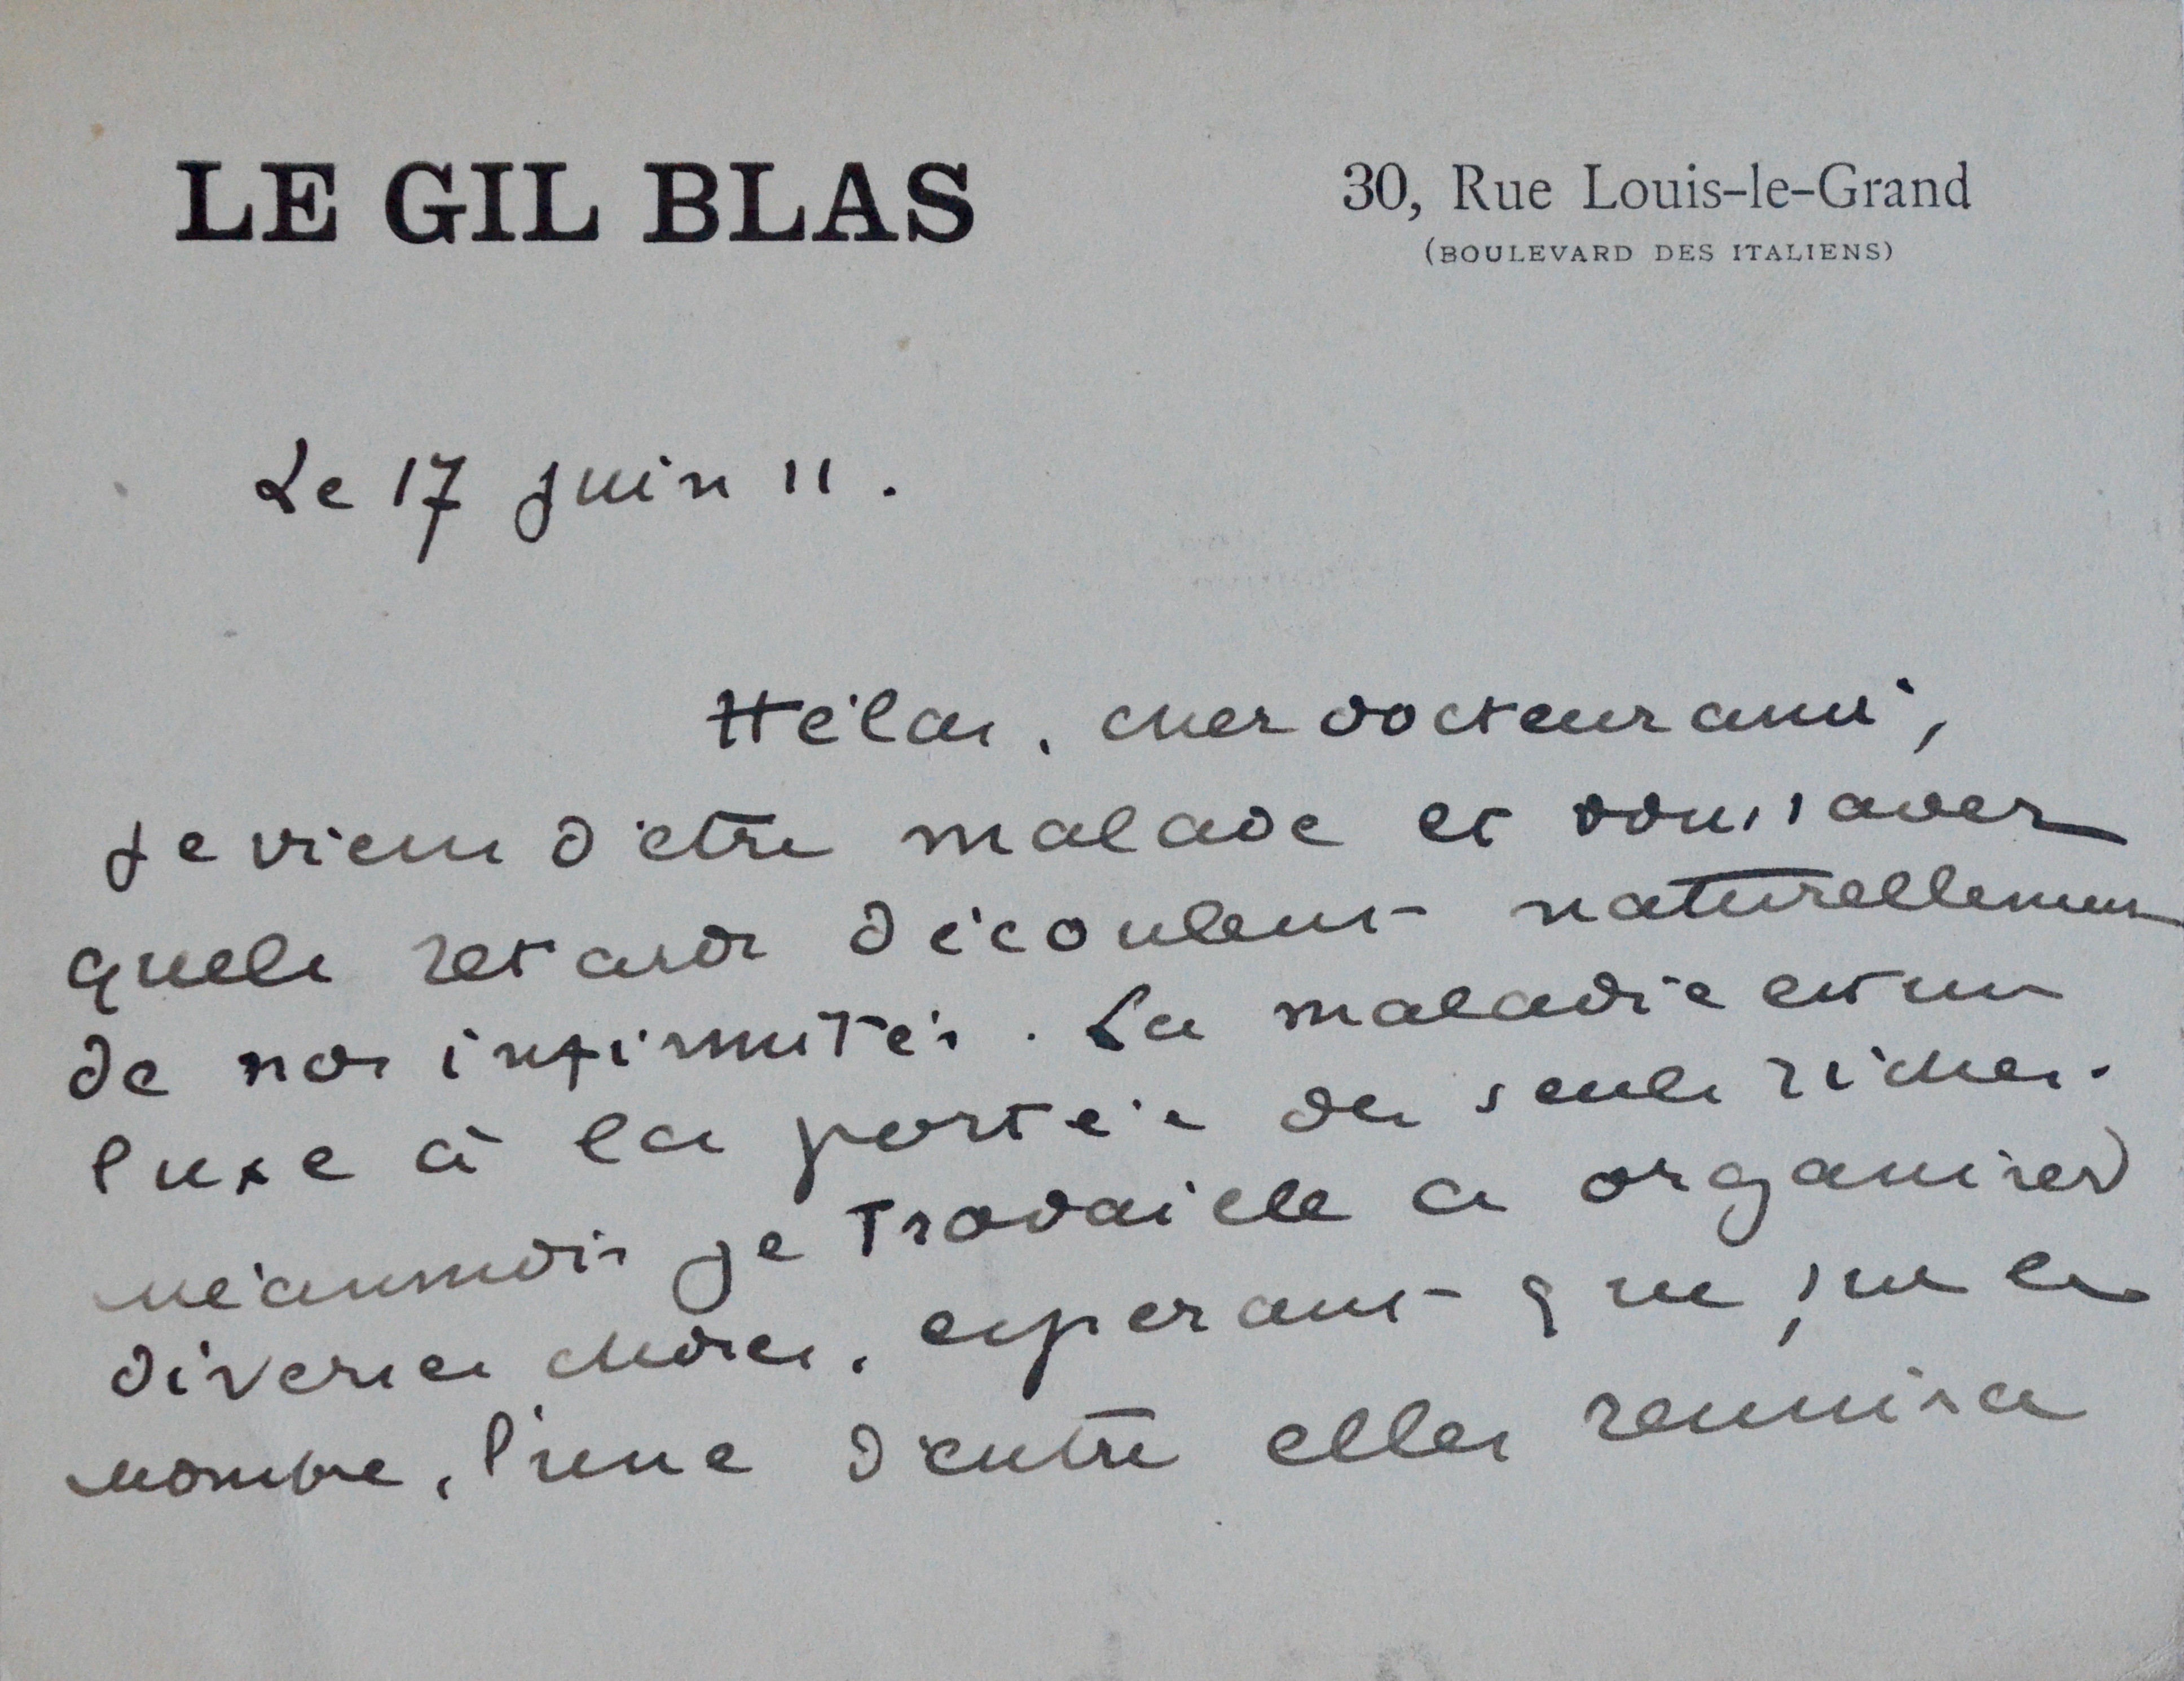 LE GIL BLAS
30, Rue Louis-le-Grand
(BOULEVARD DES ITALIENS)
Le 17 juin 11.
Hélas, cher docteur ami,
je viens d'être malade et vous savez
quels retards découlent naturellement
de nos infirmités. La maladie est un
luxe à la portée des seuls riches.
néanmois je travaille a organiser
diverses choses, esperant que, sur le
nombre, l'une d'entre elles reunisa